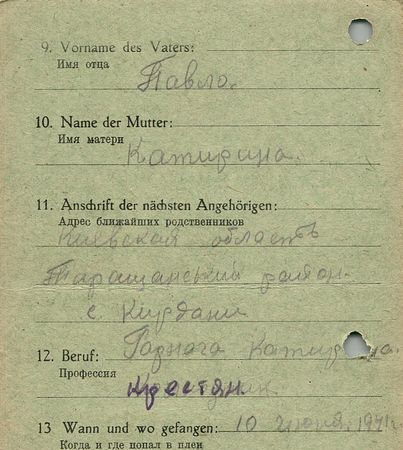 9. Vorname des Vaters:
Имя отца
Павло.
10. Name der Mutter:
Имя матери
Катирина.
11. Anschrift der nächsten Angehörigen:
Адрес ближайших родственников
Киевская область
Таращанський район
с Кирдани
12. Beruf: Горнога Катирина.
Профессия
Крестян
13 Wann und wo gefangen: 10 июня. 1941г
Когда и где попал в плен